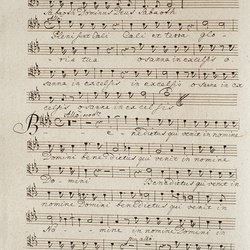 Sabaoth Dominus Deus Sabaoth
Pleni sunt Cæli Cæli et terra glo-
ria tua osanna in excelsis o-
sanna in excelsis in excelsis osanna in ex
celsis osanna in excelsis
Be - nedictus qui venit in nomine
Domini benedictus qui venit in nomine
Domini Benedictus qui venit in
nomine Domini benedictus qui venit in nomine
No - mine in nomine Domini in